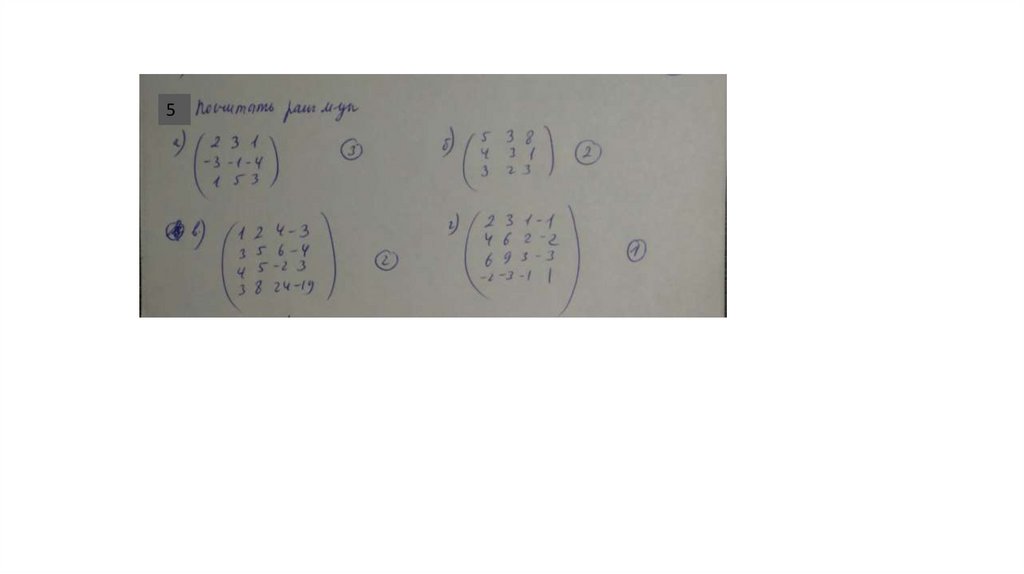 5 Посчитать ранг м-цы
а) (2 3 1
-3 -1 -4
1 5 3) ③
б) (5 3 8
4 3 1
3 2 3) ②
в) (1 2 4 -3
3 5 6 -4
4 5 -2 3
3 8 24 -19) ②
г) (2 3 1 -1
4 6 2 -2
6 9 3 -3
-2 -3 -1 1) ①